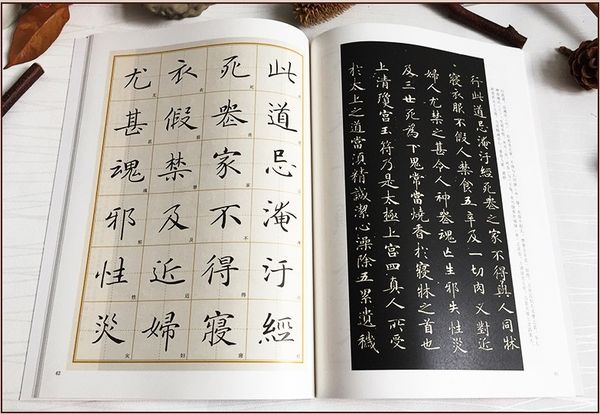 此道忌淹汙經
死喪家不得寢
衣假禁及近婦
尤甚魂邪性災
62
行此道忌淹汙經死喪之家不得與人同牀
寢衣服不假人禁食五辛及一切肉又對近
婦人尤禁之甚令人神喪魂亡生邪失性災
及三世死為下鬼常當燒香於寢牀之首也
上清瓊宮玉符乃是太極上宮四真人所受
於太上之道當須精誠潔心澡除五累遺穢